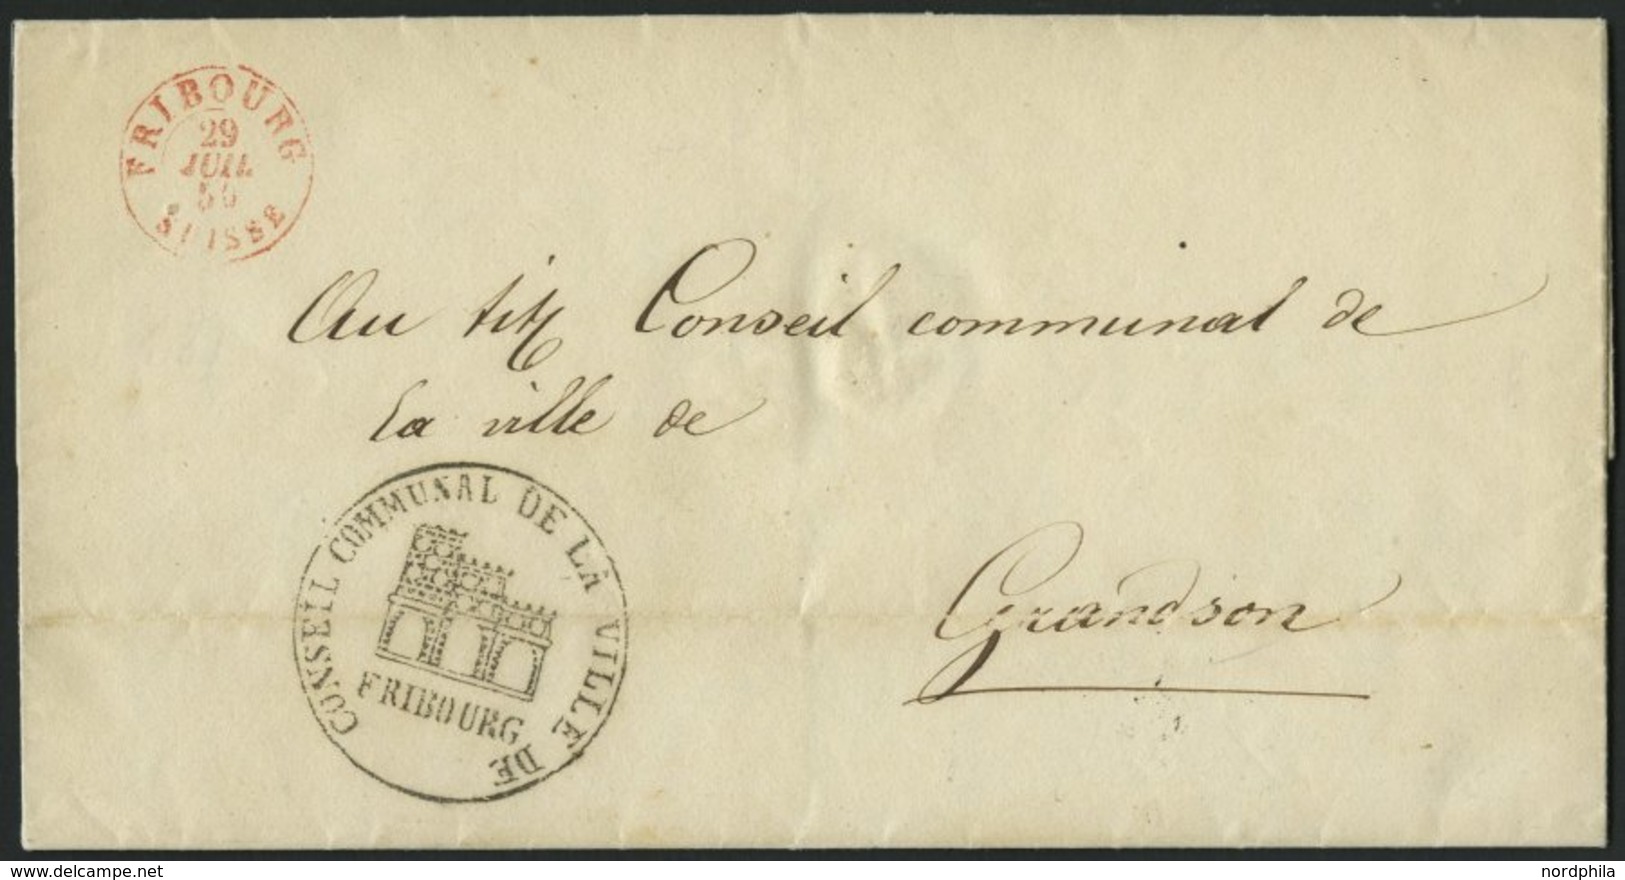 FRIBOURG
29
JUIL
SUISSE
Au tit Conseil communal de
la ville de
CONSEIL COMMUNAL DE LA VILLE DE
FRIBOURG
Grandson
delcampe.net
nordphila